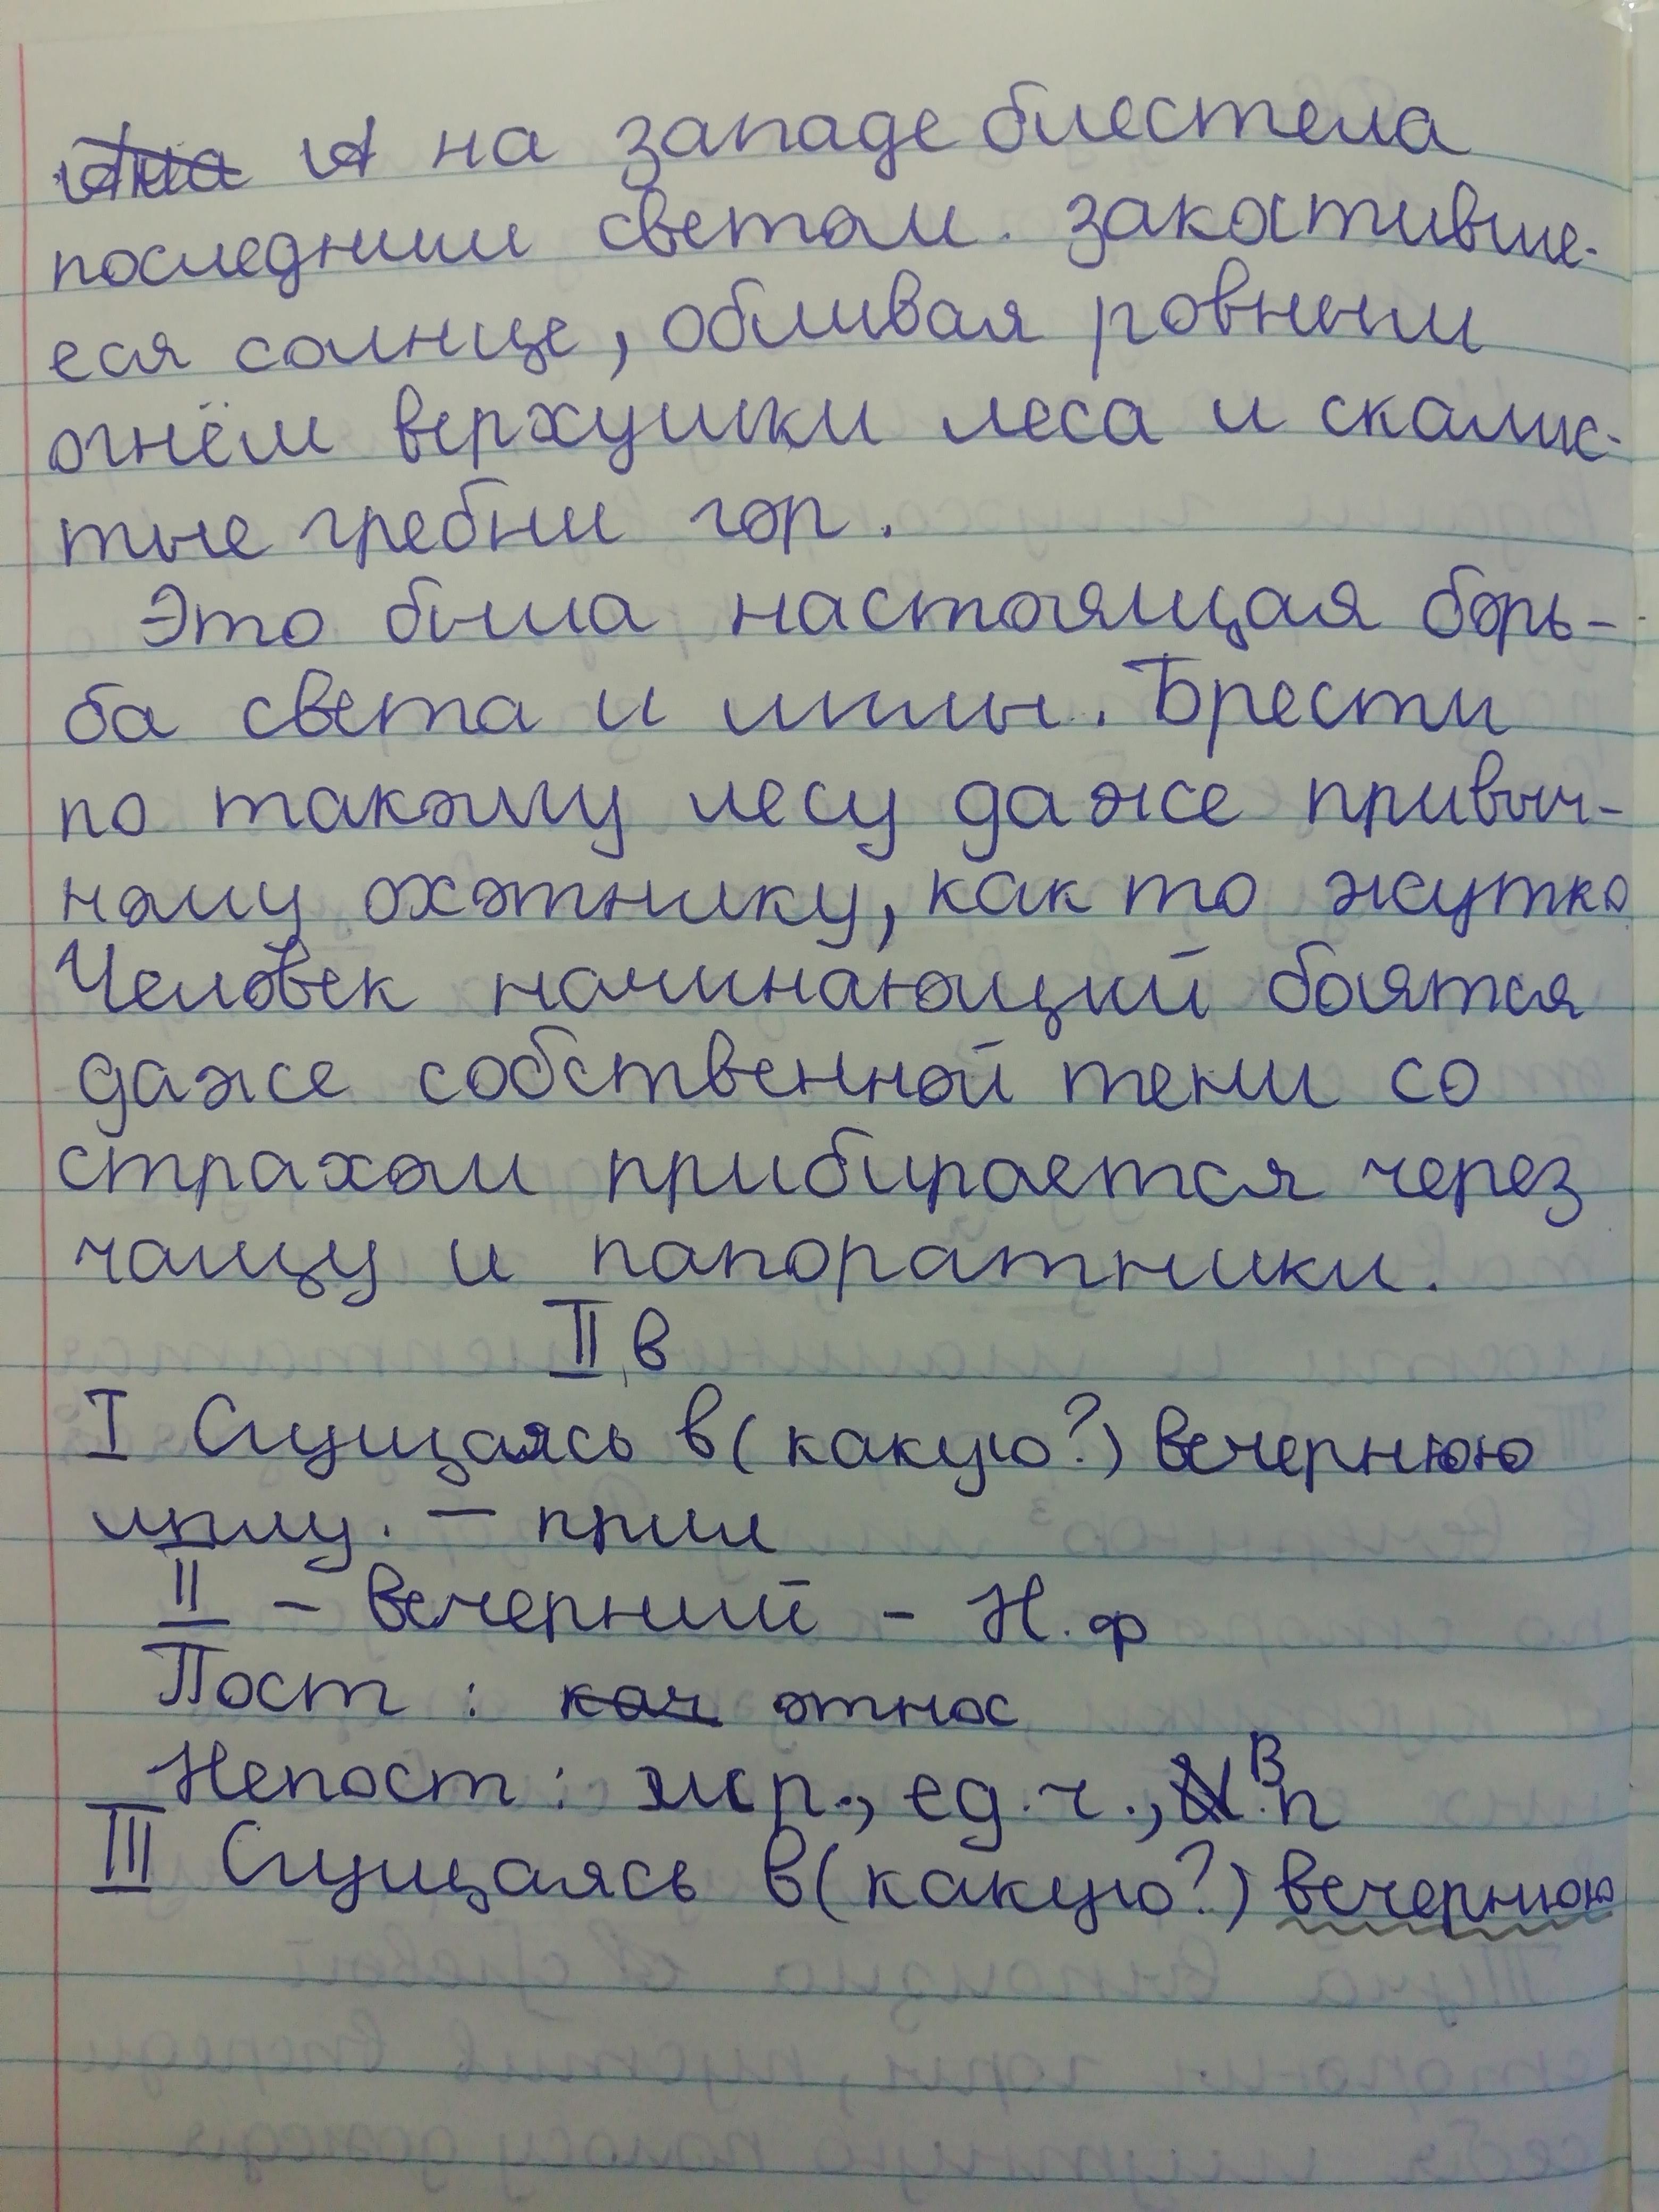 А на западе блестела
последним светом. закотивше-
еся солнце, обливая ровным
огнём верхушки леса и скалис-
тые гребни гор.
Это была настоящая борь-
ба света и мглы. Брести
по такому лесу даже привыч-
ному охотнику, как то жутко
Человек начинающий боятся
даже собственной тени со
страхом прибирается через
чащу и папоратники.
II в
I Сгущаясь в (какую?) вечернюю
мглу. – прил
II – вечерний – Н.ф
Пост : кач относ
Непост : ж р., ед.ч., В.п
III Сгущаясь в (какую?) вечернюю